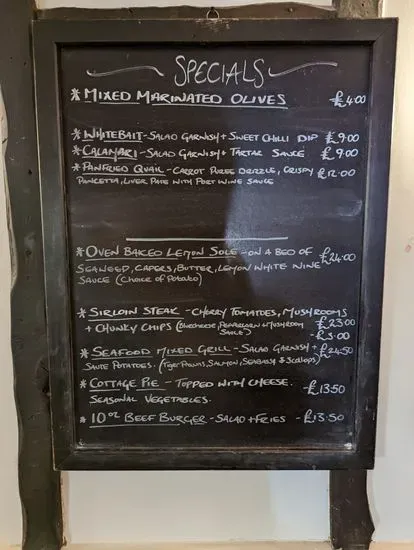 SPECIALS
* MIXED MARINATED OLIVES £4.00
* WHITEBAIT - SALAD GARNISH + SWEET CHILLI DIP £9.00
* CALAMARI - SALAD GARNISH + TARTAR SAUCE £9.00
* PANFRIED QUAIL - CARROT PUREE DRIZZLE, CRISPY £12.00
PANCETTA, LIVER PATE WITH PORT WINE SAUCE
* OVEN BAKED LEMON SOLE - ON A BED OF £24.00
SEAWEED, CAPERS, BUTTER, LEMON WHITE WINE
SAUCE (Choice of Potato)
* SIRLOIN STEAK - CHERRY TOMATOES, MUSHROOMS
+ CHUNKY CHIPS ( PEPPERCORN + MUSHROOM £23.00
SAUCE) £3.00
* SEAFOOD MIXED GRILL - SALAD GARNISH + £24.50
SAUTE POTATOES. (Tiger Prawns, SALMON, SEABASS & Scallops)
* COTTAGE PIE - TOPPED WITH CHEESE. £13.50
SEASONAL VEGETABLES.
* 10 oz BEEF BURGER - SALAD + FRIES - £13.50